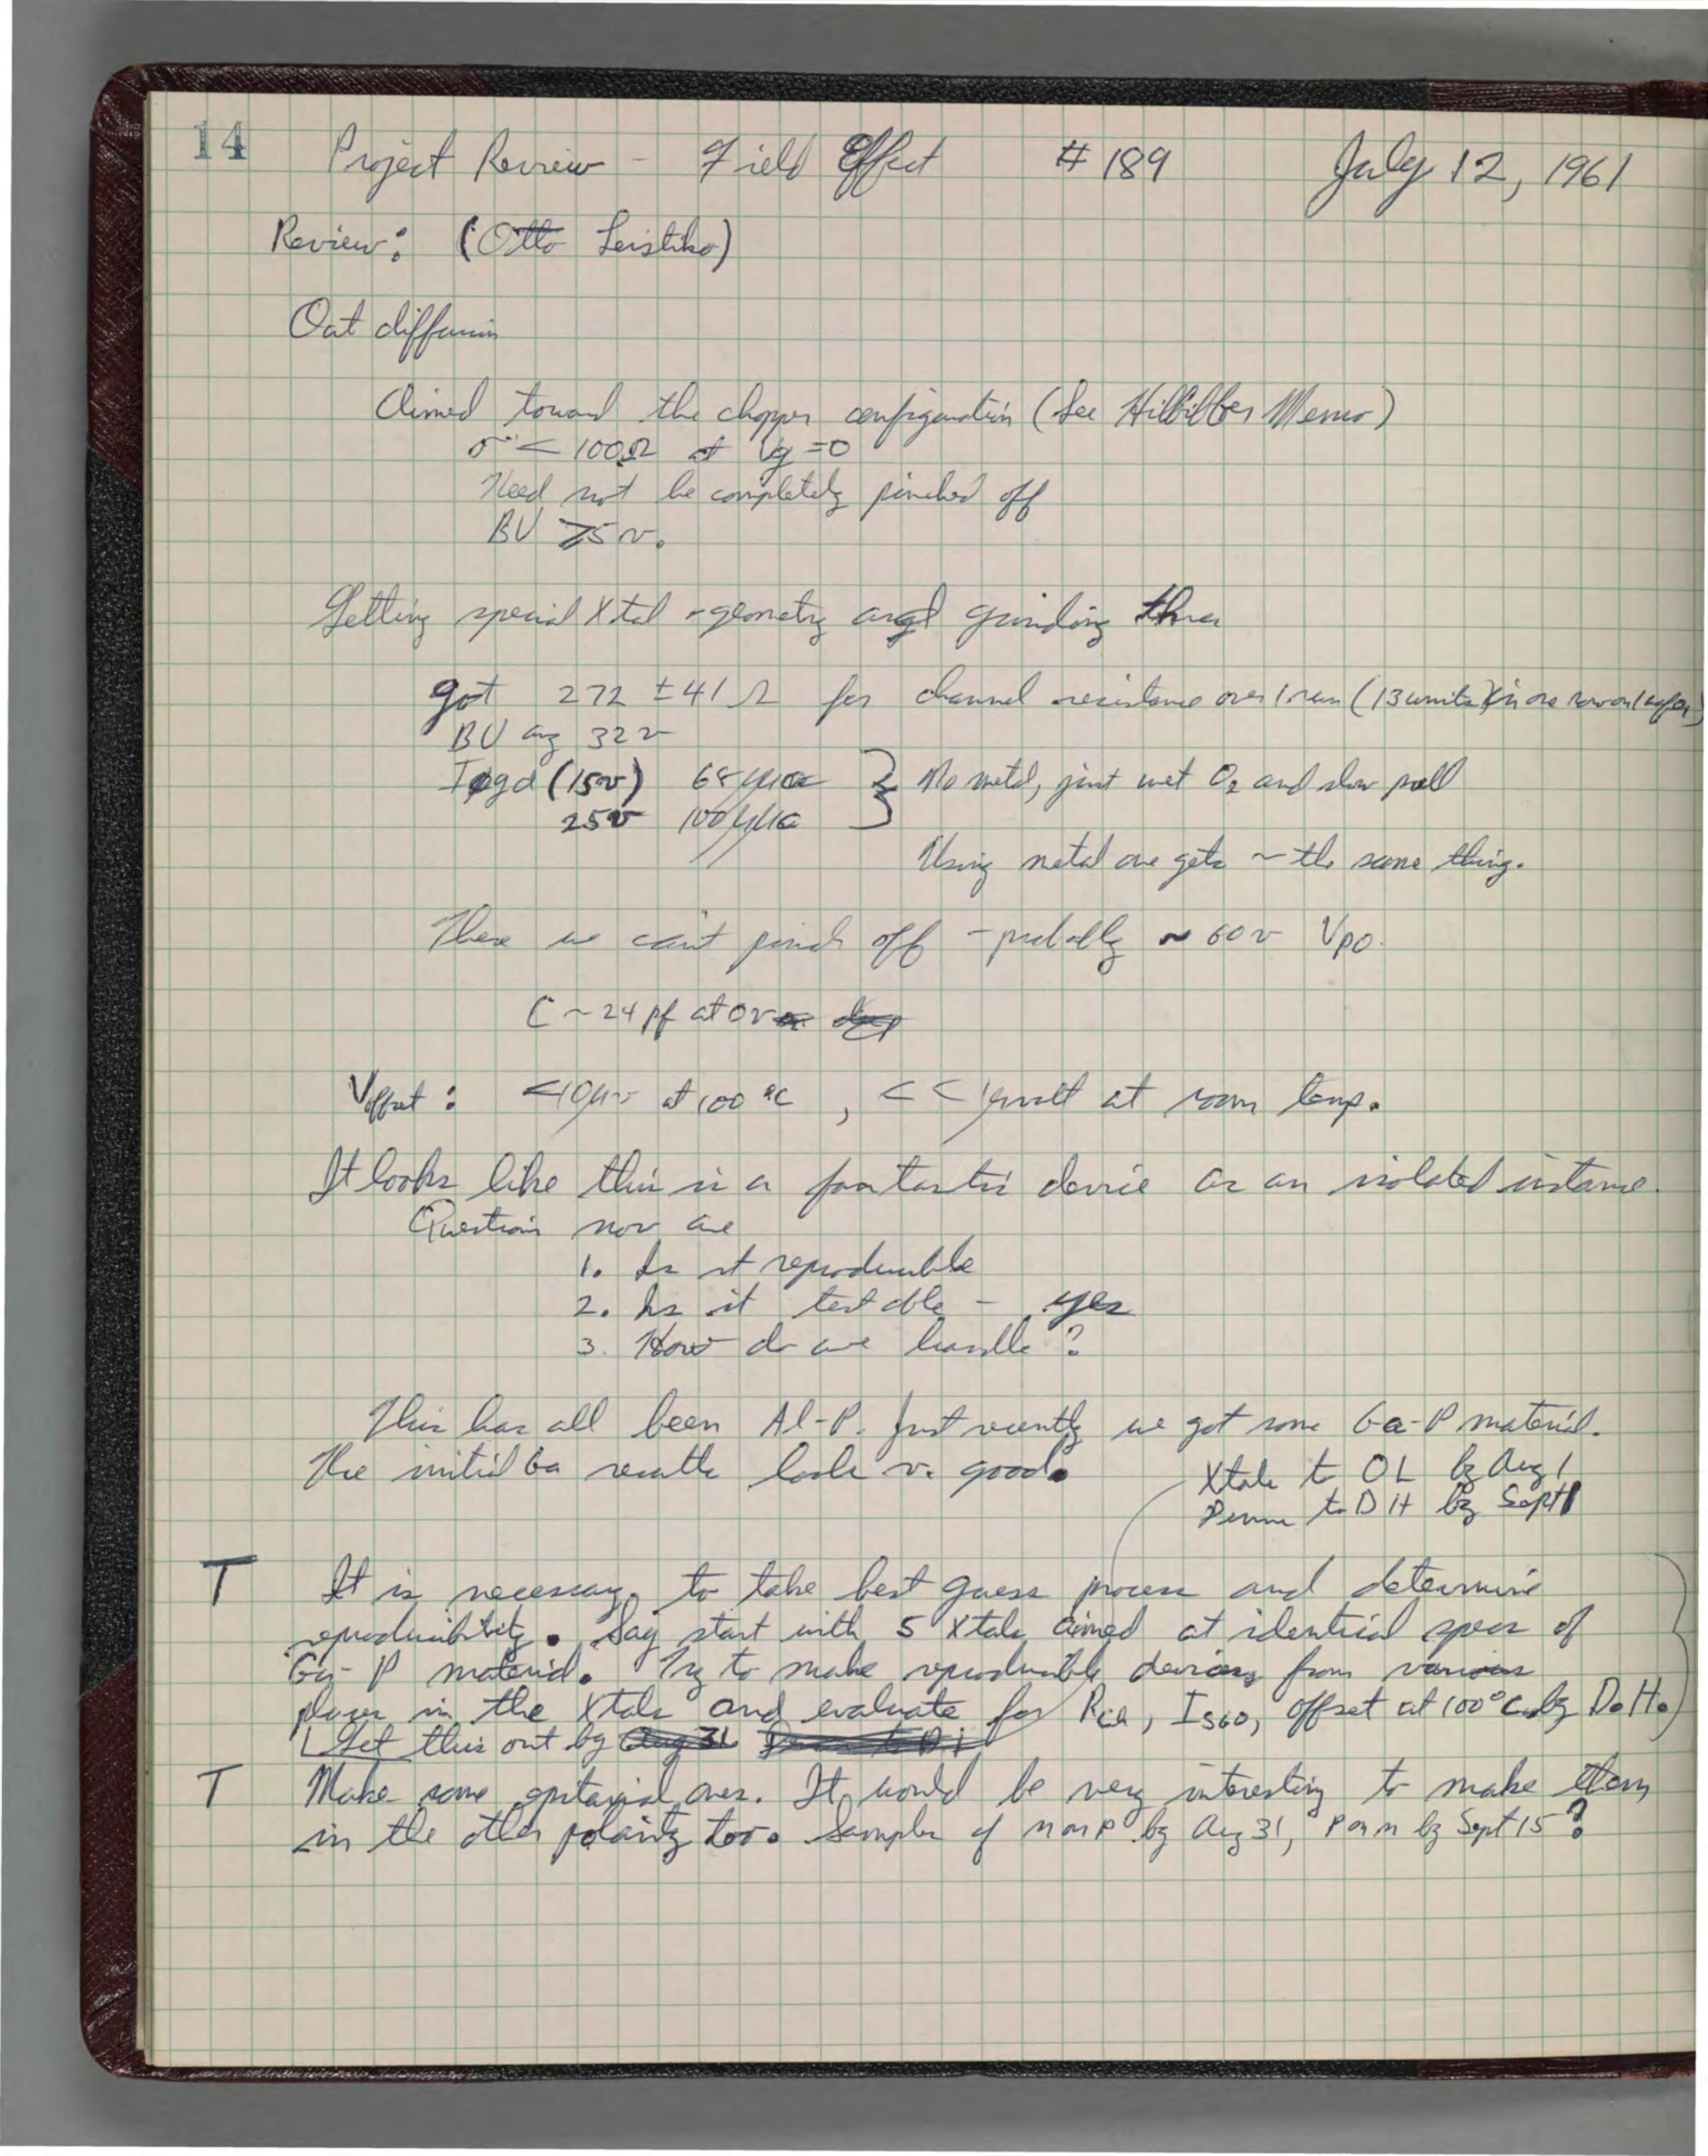 14 Project Review - Field Effect # 189 July 12, 1961
Review: (Otto Leistiko)
Out diffusion
Aimed toward the chopper configuration (See Hilbiber Memo)
r < 100Ω at Vg = 0
Need not be completely pinched off
BU ≥ 5 v.
Getting special Xtal - geometry and grinding
got 272 ± 41 Ω for channel resistance over 1 run (13 units) (in one row on 1 wafer)
BU avg 32 v
(15v) 68 μμa } No metal, just wet O2 and slow pull
25v 100 μμa
Using metal one gets ~ the same thing.
These we can't pinch off - probably ~ 60 v VPO.
C ~ 24 pf at 0v
Voffset : <10μv at 100 °C , << 1 μvolt at room temp.
It looks like this is a fantastic device as an isolated instance.
Question now are
1. Is it reproducible
2. Is it testable - yes
3. How do we handle ?
This has all been Al-P. Just recently we got some Ga-P material.
The initial Ga results look v. good.
Xtals to OL by Aug 1
to DH by Sept 1
T It is necessary to take best guess process and determine
reproducibility. Say start with 5 Xtals aimed at identical specs of
Ga-P material. Try to make reproducible devices from various
places in the Xtals and evaluate for , , offset at 100°C by D.H.
Get this out by Aug 31
T Make some epitaxial ones. It would be very interesting to make them
in the other polarity too. Samples of n on p by Aug 31, p on n by Sept 15 ?